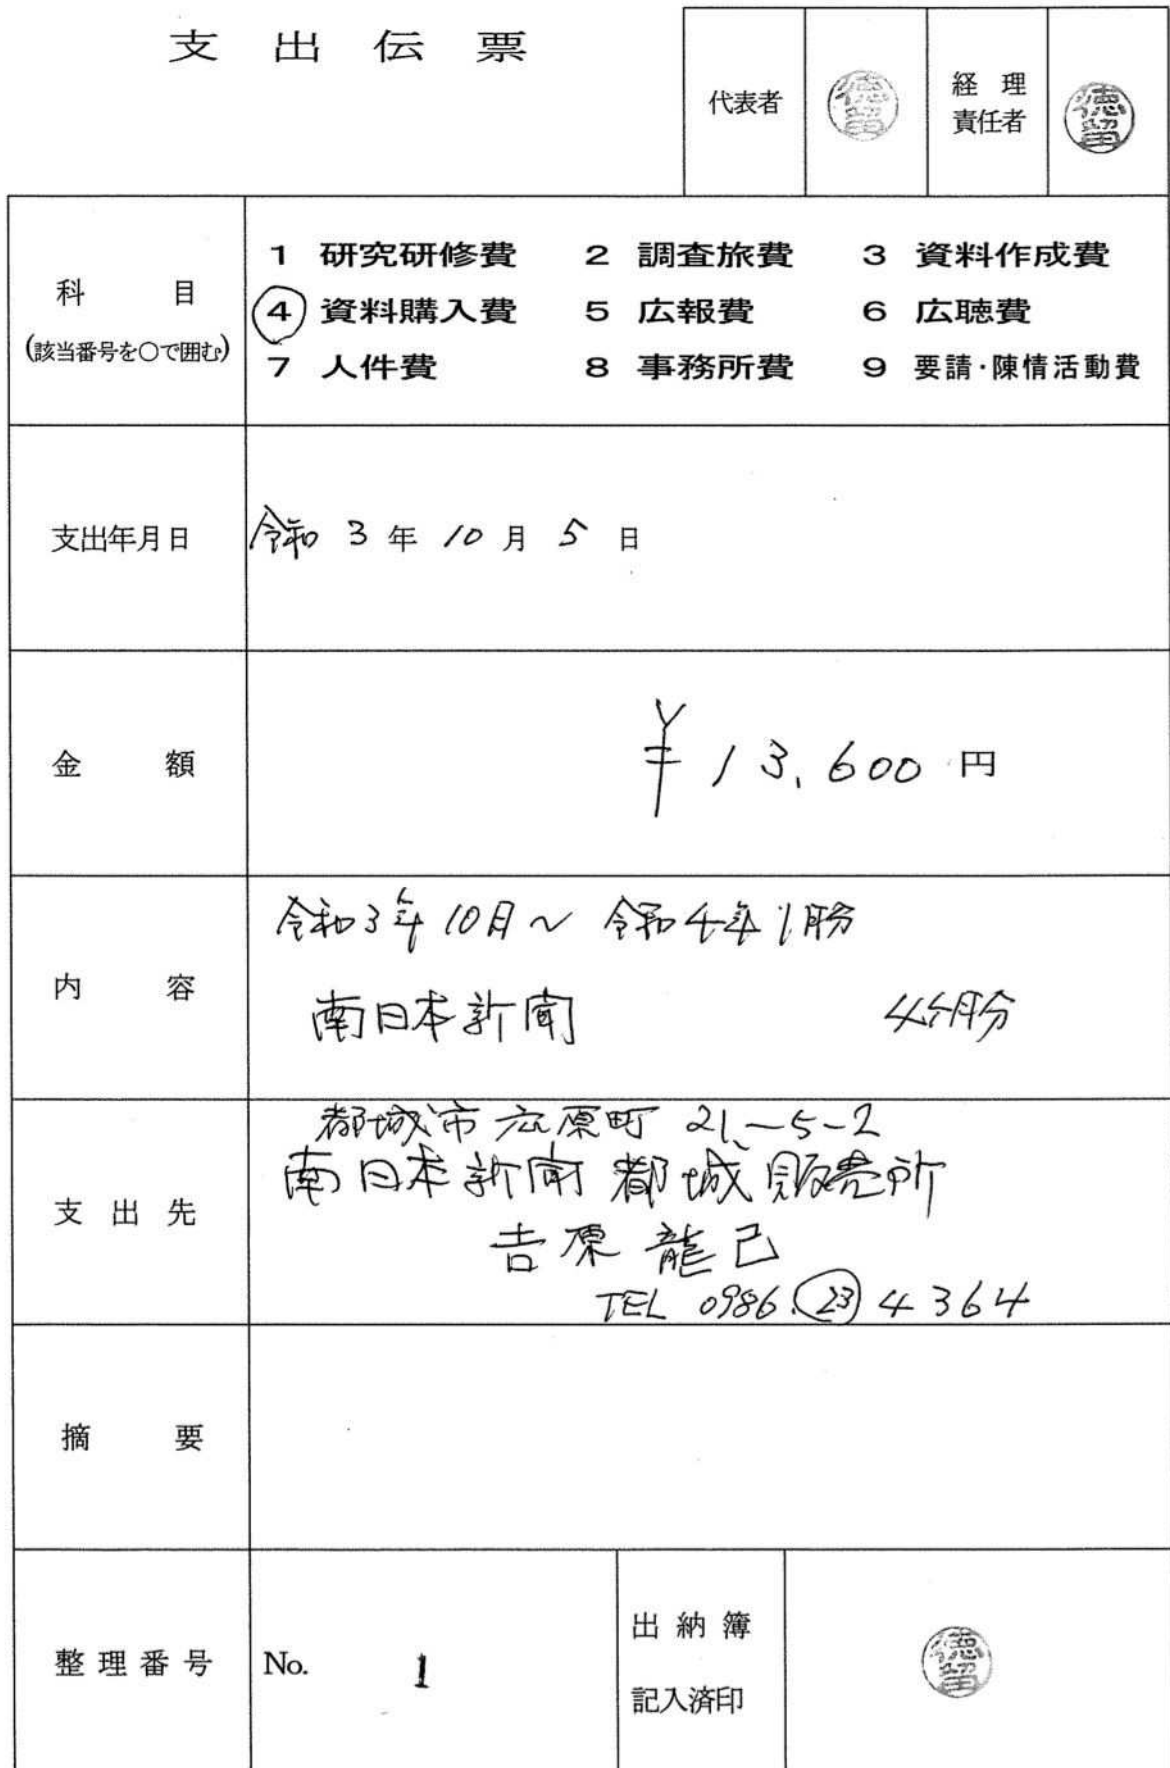 支出伝票
代表者 徳留 経理責任者 徳留
科目
(該当番号を○で囲む)
1 研究研修費 2 調査旅費 3 資料作成費
4 資料購入費 5 広報費 6 広聴費
7 人件費 8 事務所費 9 要請・陳情活動費
支出年月日 令和 3 年 10 月 5 日
金額 ¥13,600 円
内容
令和3年10月~令和4年1月分
南日本新聞 4ヶ月分
支出先
都城市広原町 21-5-2
南日本新聞都城販売所
吉原龍己
TEL 0986.23 4364
摘要
整理番号 No. 1
出納簿
記入済印 徳留